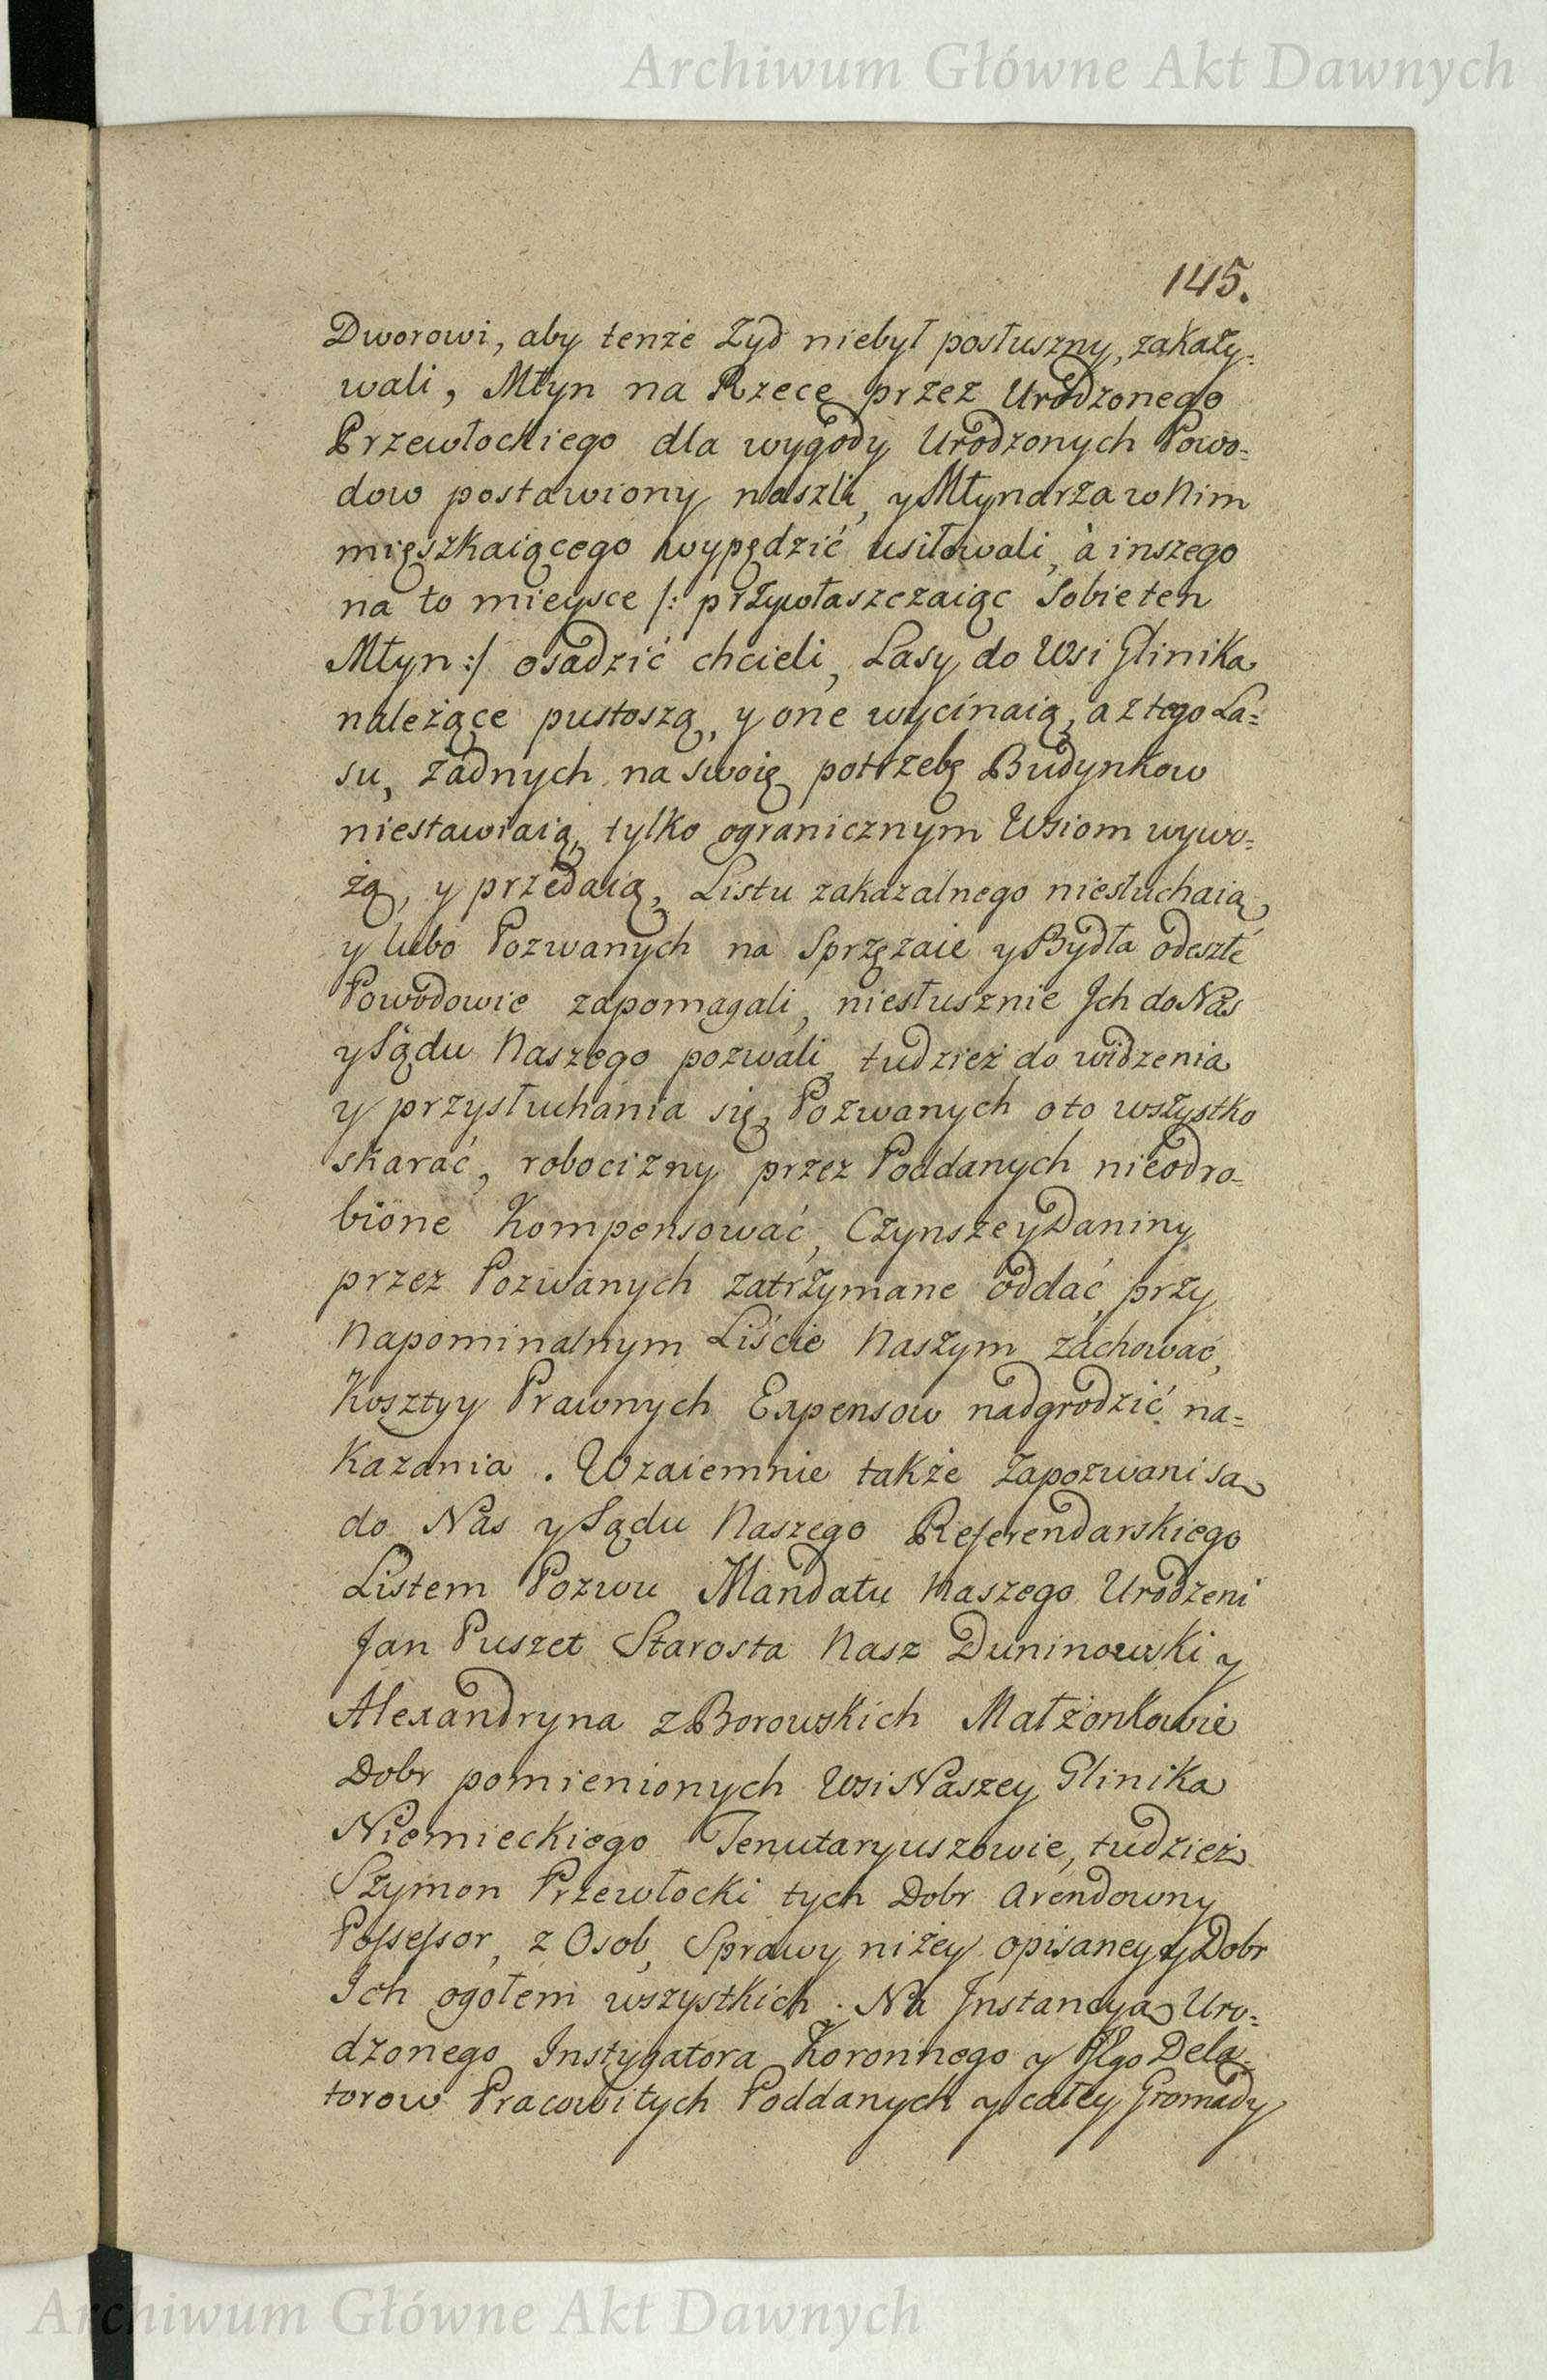 Archiwum Główne Akt Dawnych
145.
Dworowi, aby tenże Żyd niebył posłuszny, zakazy=
wali, Młyn na Rzece przez Urodzonego
Przewłockiego dla wygody Urodzonych Powo=
dow postawiony naszli, y Młynarza w Nim
mięszkaiącego wypędzić usiłowali, à inszego
na to mieysce /: przywłaszczaiąc Sobie ten
Młyn :/ osadzić chcieli, Lasy do Wsi Glinika
należące pustoszą, y one wycinaią, a z tego La=
su, żadnych na swoię potrzebę Budynkow
niestawiaią, tylko ogranicznym Wsiom wywo=
żą, y przedaią, Listu zakazalnego niesłuchaią,
y lubo Pozwanych na Sprzężaie y Bydła odeszłé
Powodowie zapomagali, niesłusznie Ich do Nas
y Sądu Naszego pozwali, tudzież do widzenia
y przysłuchania się, Pozwanych oto wszystko
skarać, robocizny przez Poddanych nieodro=
bione Kompensować, Czynsze y Daniny
przez Pozwanych zatrzymane oddać, przy
Napominalnym Liście Naszym zachować,
Koszty y Prawnych Expensow nadgrodzić na=
kazania. Wzaiemnie także Zapozwani są
do Nas y Sądu Naszego Referendarskiego
Listem Pozwu Mandatu Naszego Urodzeni
Jan Puszet Starosta Nasz Duninowski y
Alexandryna z Borowskich Małżonkowie
Dobr pomienionych Wsi Naszey Glinika
Niemieckiego Tenutaryuszowie, tudzież
Szymon Przewłocki tych Dobr Arendowny
Possessor, z Osob, Sprawy niżey opisaney y Dobr
Ich ogołem wszystkich. Na Instancyą Uro=
dzonego Instygatora Koronnego y Jego Dela=
torow Pracowitych Poddanych y całey Gromady
Archiwum Główne Akt Dawnych